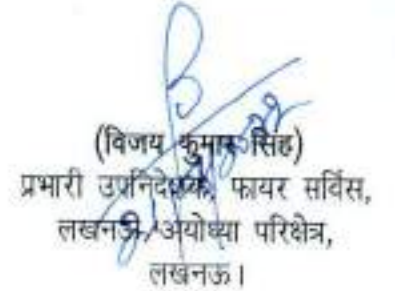 (विजय कुमार सिंह)
प्रभारी उपनिदेशक, फायर सर्विस,
लखनऊ/अयोध्या परिक्षेत्र,
लखनऊ।